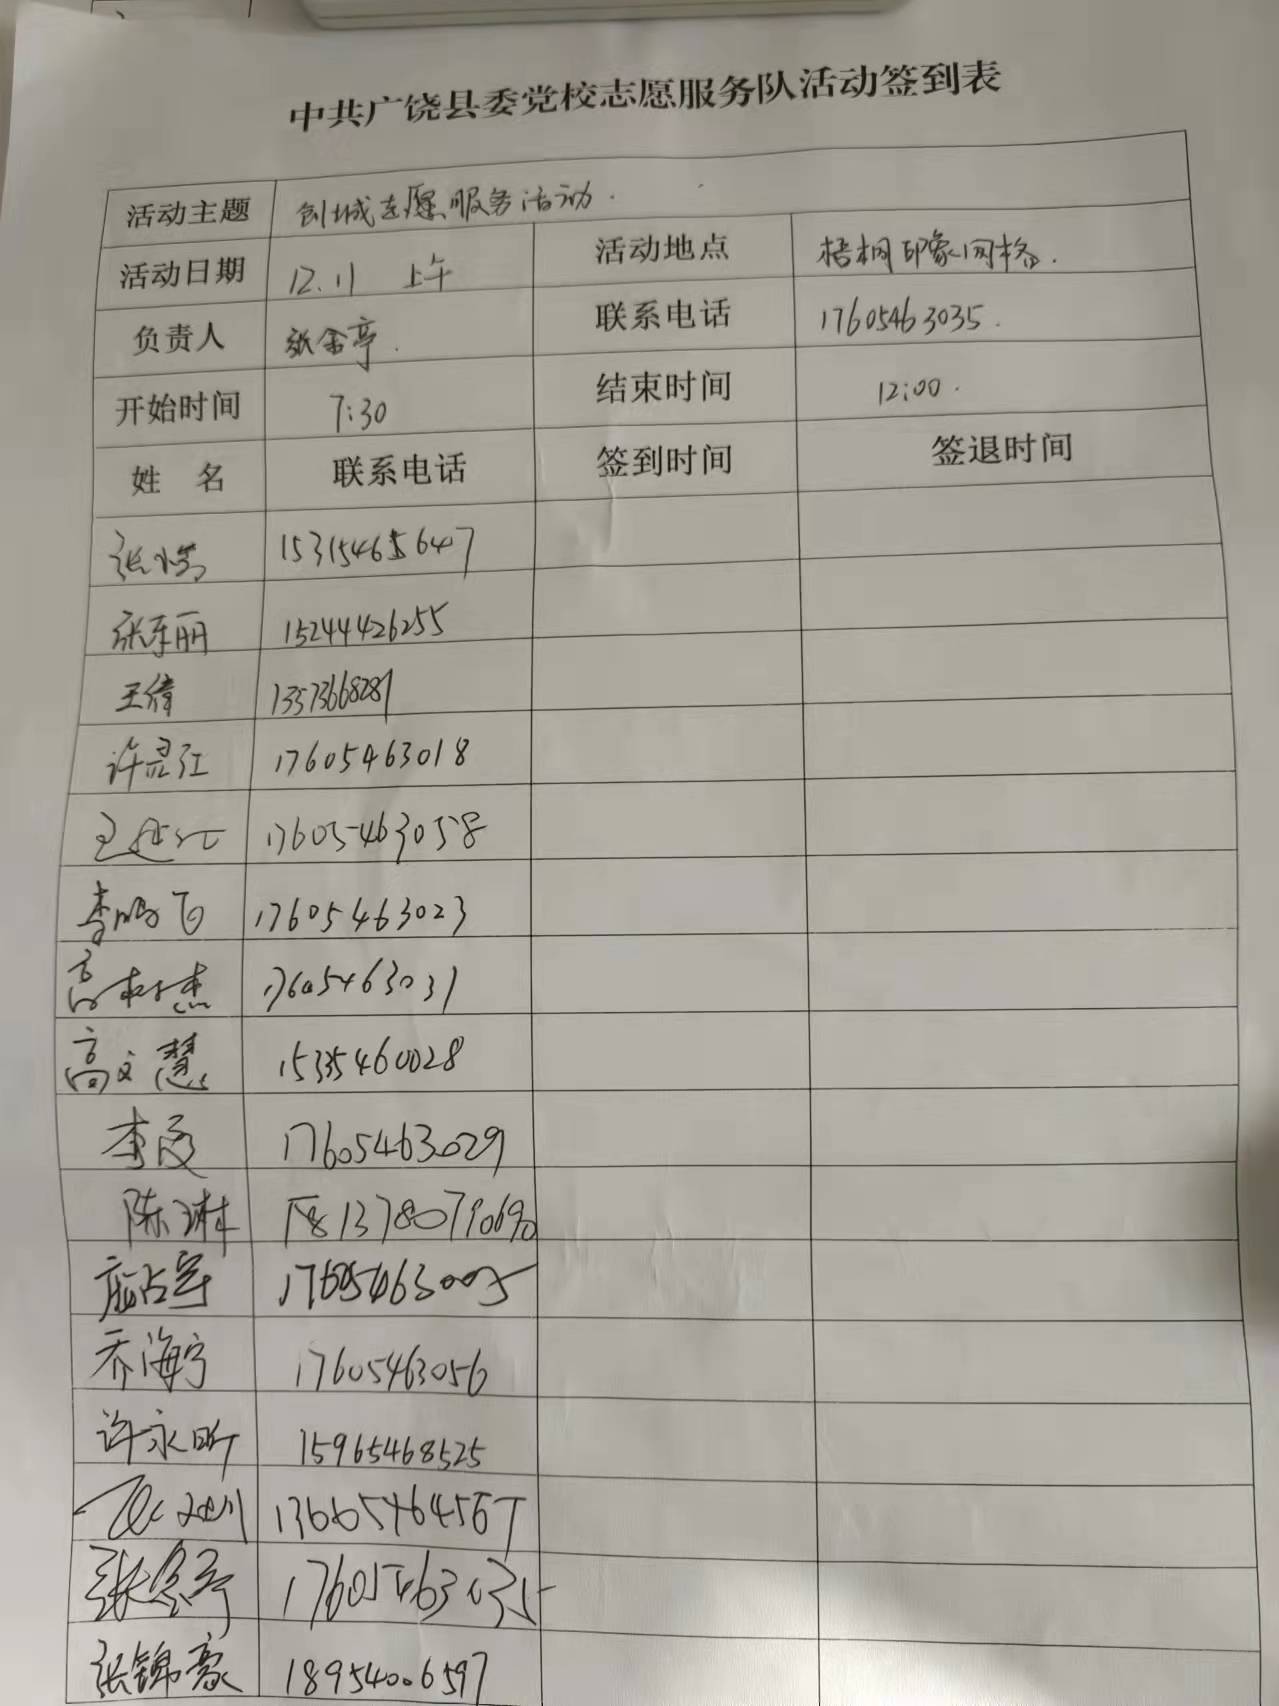 中共广饶县委党校志愿服务队活动签到表
活动主题 创城志愿服务活动.
活动日期 12.11 上午 活动地点 梧桐印象网格.
负责人 张金亭. 联系电话 17605463035.
开始时间 7:30 结束时间 12:00.
姓 名 联系电话 签到时间 签退时间
15315465647
张东丽 15244426255
王倩 13573668287
许灵江 17605463018
17605463058
李鹏飞 17605463023
高树杰 17605463031
高文慧 15335460028
17605463029
陈琳 13780790690
17605463005
乔海宁 17605463056
许永昕 15965468525
张金亭 17605463035
张锦豪 18954006597